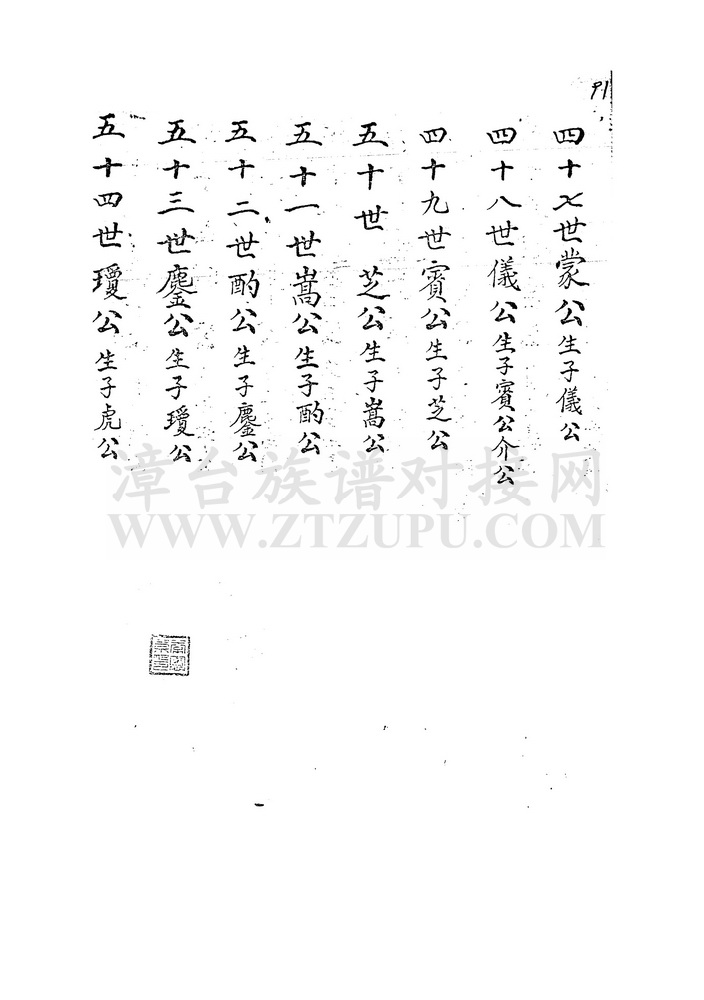 91
四十七世蒙公生子儀公
四十八世儀公生子賓公介公
四十九世賓公生子芝公
五十世 芝公生子嵩公
五十一世嵩公生子酌公
五十二世酌公生子鏖公
五十三世鏖公生子瓊公
五十四世瓊公生子虎公
漳台族谱对接网
WWW.ZTZUPU.COM